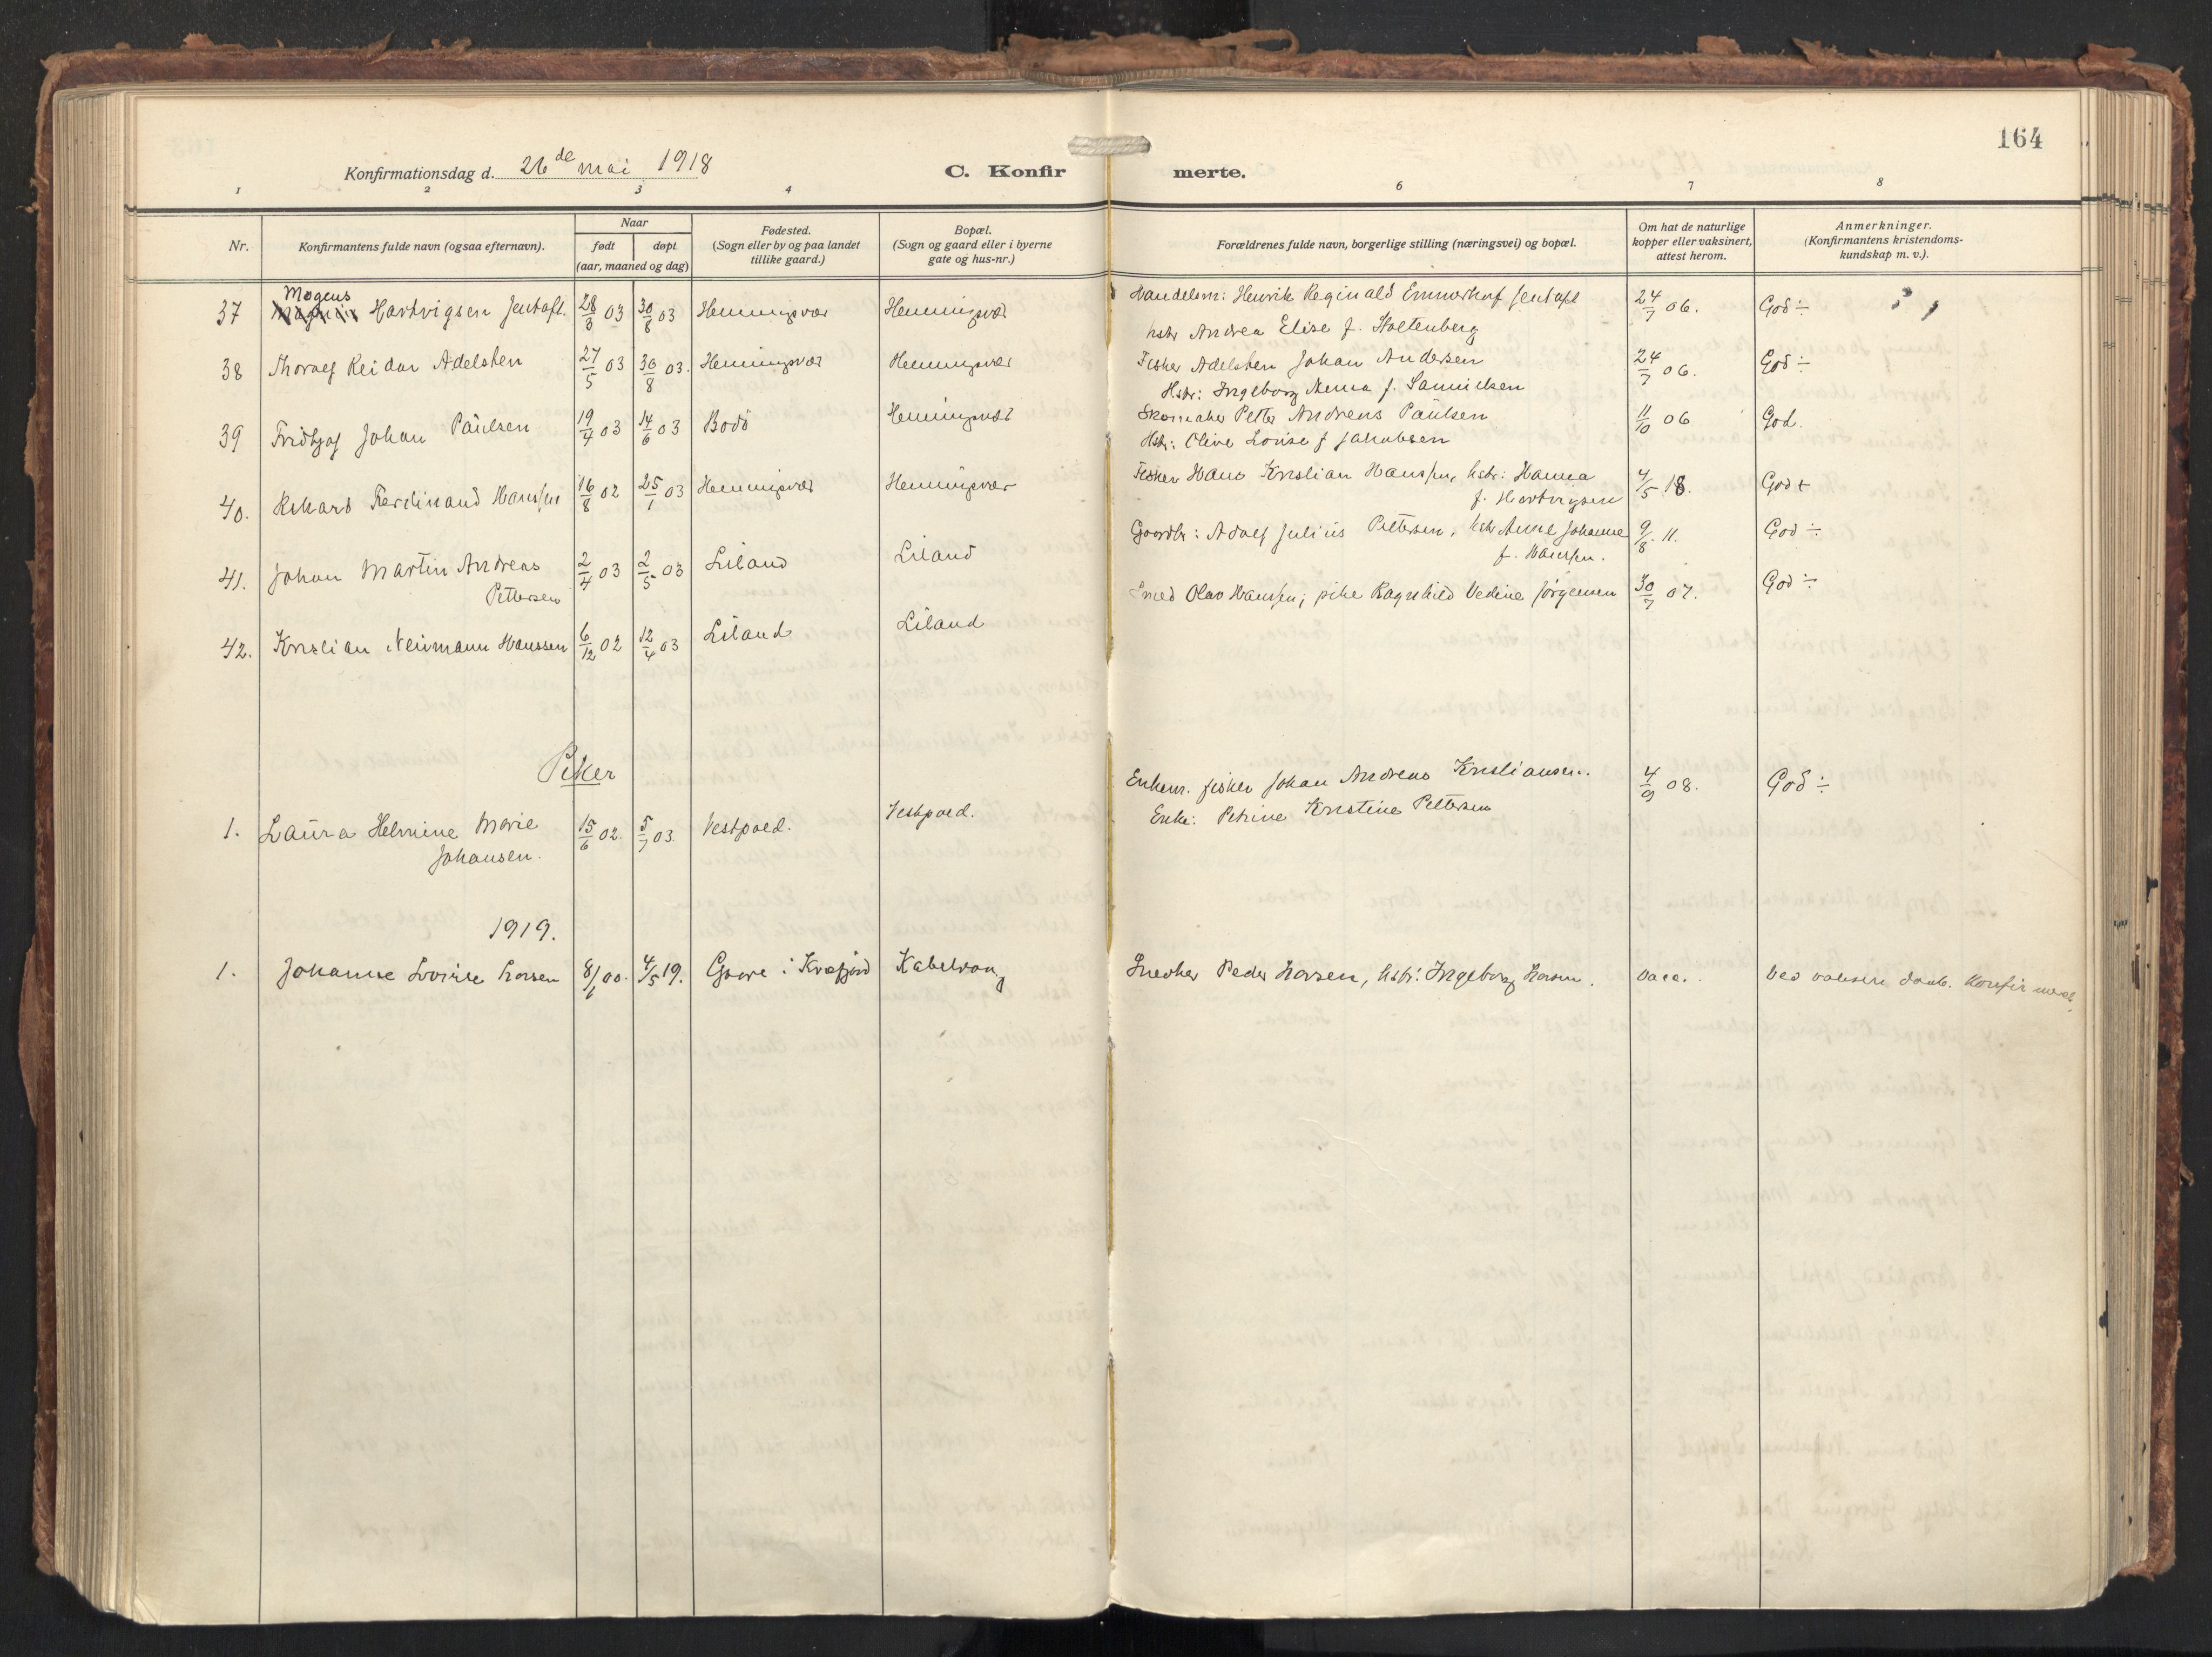 164
Konfirmationsdag d. 26de mai 1918
C. Konfirmerte.
1 2 3 4 6 7 8
Nr.
Konfirmantens fulde navn (ogsaa efternavn).
Naar
født døpt
(aar, maaned og dag)
Fødested.
(Sogn eller by og paa landet
tillike gaard.)
Bopæl.
(Sogn og gaard eller i byerne
gate og hus-nr.)
Forældrenes fulde navn, borgerlige stilling (næringsvei) og bopæl.
Om hat de naturlige
kopper eller vaksinert,
attest herom.
Anmerkninger.
(Konfirmantens kristendoms-
kundskap m. v.).
Mogens
37 Hartvigsen Jentoft. 28/3 03 30/8 03 Henningsvær Henningsvær Handelsm: Henrik Reginald Jentoft 24/7 06. God ÷
hstr Andrea Elise f. Holtenberg
38 Thoralf Reidar Adelsten 27/5 03 30/8 03. Henningsvær Henningsvær Fisker Adelsten Johan Andersen 24/7 06. God ÷
Hstr: Ingeborg f. Samuelsen
39 Fridtjof Johan Paulsen 19/4 03 14/6 03 Bodö Henningsvær Skomaker Petter Andreas Paulsen 11/10 06 God.
Hstr: Oline Lovise f Jakobsen
40. Rikard Ferdinand Hanssen 16/8 02 25/1 03 Henningsvær Henningsvær Fisker Hans Kristian Hanssen, hstr: Hanna 4/5 18. God +
f. Hartvigsen
41. Johan Martin Andreas 2/4 03 2/5 03 Liland Liland Gaardbr: Adolf Julius Pettersen, hstr Anne Johanne 9/8 11. God ÷
Pettersen
f. Hanssen.
42. Kristian Neumann Hanssen 6/12 02 12/4 03 Liland Liland Smed Olav Hanssen, pike Ragnhild Vedine Jørgensen 30/7 07. God ÷
Piker
1. Laura Helmine Marie 15/6 02. 5/7 03. Vestpoed. Vestpoed. Enkem. fisker Johan Andreas Kristiansen. 4/9 08. God ÷
Johansen.
Enke: Petrine Kristine Pettersen
1919.
1. Johanne Lovise Larsen 8/1 00. 4/5 19. Gaare i Kvæfjord Kabelvaag Snedker Peder Larsen, hstr: Ingeborg Larsen. Vacc. Ved voksen daab. Konfirmert.